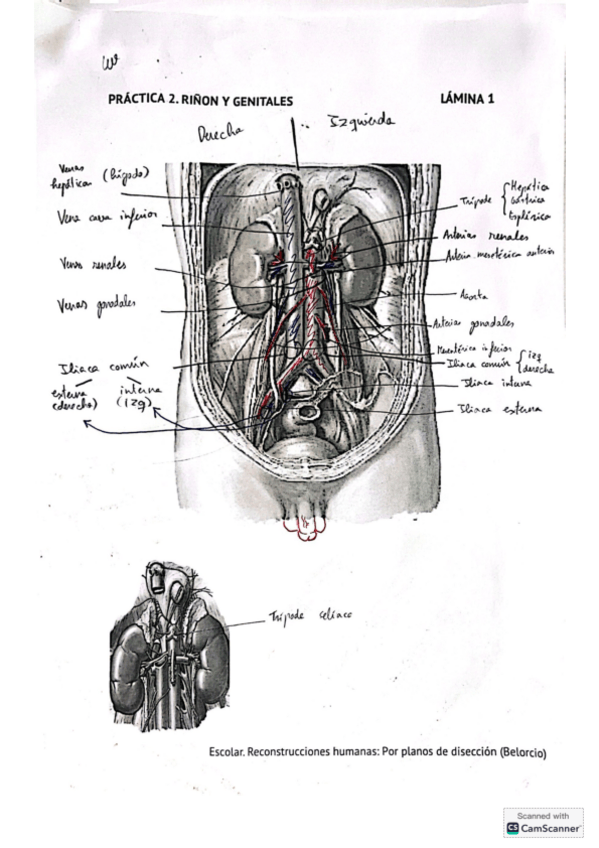 PRÁCTICA 2. RIÑON Y GENITALES
LÁMINA 1
Derecha
Izquierda
Venas
hepáticas (hígado)
Vena cava inferior
Venas renales
Venas gonadales
Iliaca común
externa
(derecha)
interna
(izq)
Trípode
Hepática
Gástrica
Esplénica
Arterias renales
Arteria mesetérica anterior
Aorta
Arterias gonadales
Mesentérica inferior
Iliaca común
izq
derecha
Iliaca interna
Iliaca externa
Trípode celiaco
Escolar. Reconstrucciones humanas: Por planos de disección (Belorcio)
Scanned with
CS CamScanner